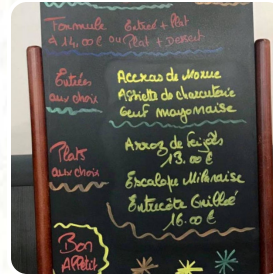 Formule Entrée + Plat
à 14,00 € ou Plat + Dessert
Entrées
aux choix
Accras de Morue
Assiette de charcuterie
Oeuf mayonnaise
Plats
aux choix
Arroz de
13.00 €
Escalope Milanaise
Entrecôte Grillée
16.00 €
Bon
Appétit